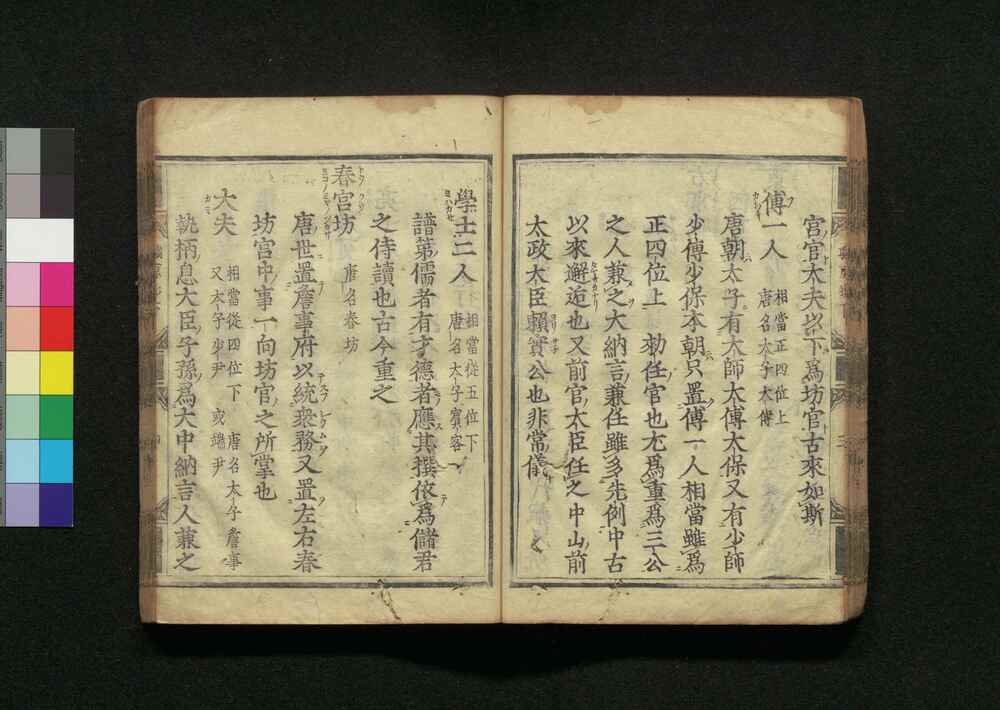 宮官大夫以下爲坊官古來如斯
傅一人 相當正四位上 唐名太子太傅
唐朝太子有太師太傅太保又有少師
少傅少保本朝只置傅一人相當雖爲
正四位上 勅任官也尤爲重爲三公
之人兼之大納言兼任雖多先例中古
以來邂逅也又前官大臣任之中山前
太政大臣頼實公也非常儀
學士二人 相當從五位下 唐名太子賓客
譜第儒者有才德者應其撰依爲儲君
之侍讀也古今重之
春宮坊 唐名春坊
唐世置詹事府以統衆務又置左右春
坊宮中事一向坊官之所掌也
大夫 相當從四位下 唐名太子詹事
又太子少尹 或端尹
執柄息大臣子孫爲大中納言人兼之